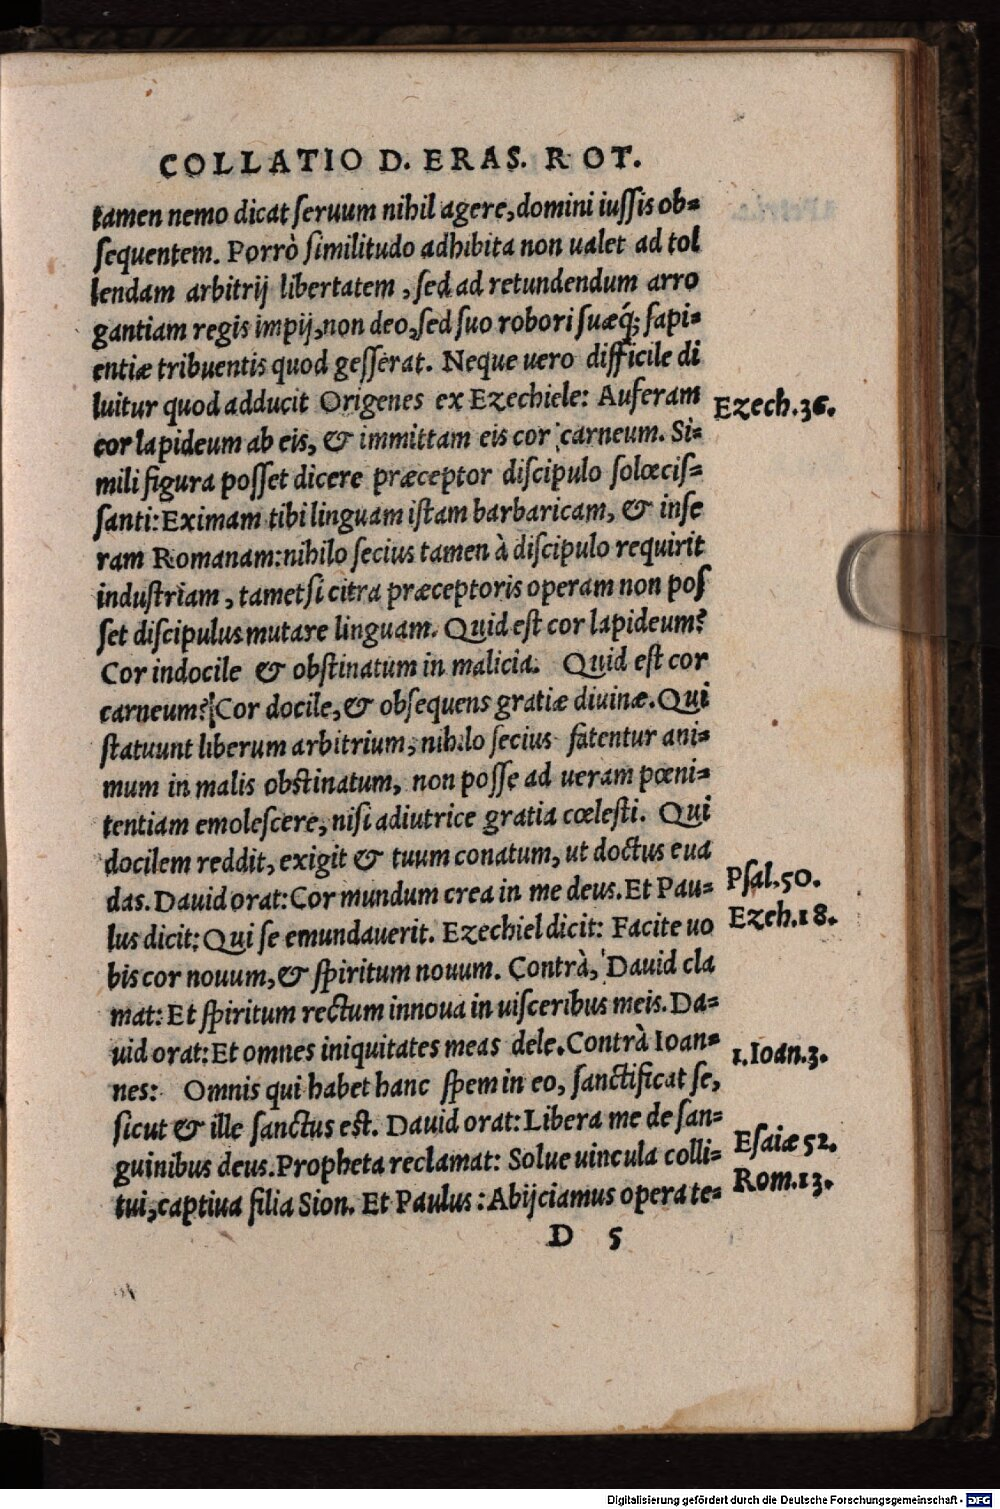 COLLATIO D. ERAS. ROT.
tamen nemo dicat ſeruum nihil agere, domini iuſſis ob=
ſequentem. Porrò ſimilitudo adhibita non ualet ad tol
lendam arbitrij libertatem, ſed ad retundendum arro
gantiam regis impij, non deo, ſed ſuo robori ſuæq́; ſapi=
entiæ tribuentis quod geſſerat. Neque uero difficile di
luitur quod adducit Origenes ex Ezechiele: Auferam
Ezech.36.
cor lapideum ab eis, & immittam eis cor carneum. Si=
mili figura poſſet dicere præceptor diſcipulo ſolœciſ=
ſanti: Eximam tibi linguam iſtam barbaricam, & inſe
ram Romanam: nihilo ſecius tamen à diſcipulo requirit
induſtriam, tametſi citra præceptoris operam non poſ
ſet diſcipulus mutare linguam. Quid eſt cor lapideum?
Cor indocile & obſtinatum in malicia. Quid eſt cor
carneum? Cor docile, & obſequens gratiæ diuinæ. Qui
ſtatuunt liberum arbitrium, nihilo ſecius fatentur ani=
mum in malis obſtinatum, non poſſe ad ueram pœni=
tentiam emoleſcere, niſi adiutrice gratia cœleſti. Qui
docilem reddit, exigit & tuum conatum, ut doctus eua
das. Dauid orat: Cor mundum crea in me deus. Et Pau=
Pſal.50.
lus dicit: Qui ſe emundauerit. Ezechiel dicit: Facite uo
Ezeh.18.
bis cor nouum, & ſpiritum nouum. Contrà, Dauid cla
mat: Et ſpiritum rectum innoua in uiſceribus meis. Da=
uid orat: Et omnes iniquitates meas dele. Contrà Ioan=
1.Ioan.3.
nes: Omnis qui habet hanc ſpem in eo, ſanctificat ſe,
ſicut & ille ſanctus eſt. Dauid orat: Libera me de ſan=
guinibus deus. Propheta reclamat: Solue uincula colli=
Eſaiæ 52.
tui, captiua filia Sion. Et Paulus: Abijciamus opera te=
Rom.13.
D 5
Digitalisierung gefördert durch die Deutsche Forschungsgemeinschaft - DFG